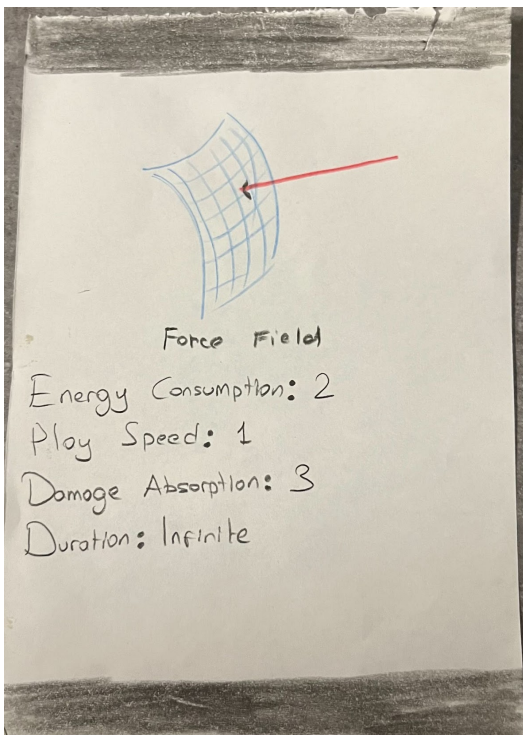 Force Field
Energy Consumption: 2
Play Speed: 1
Damage Absorption: 3
Duration: Infinite